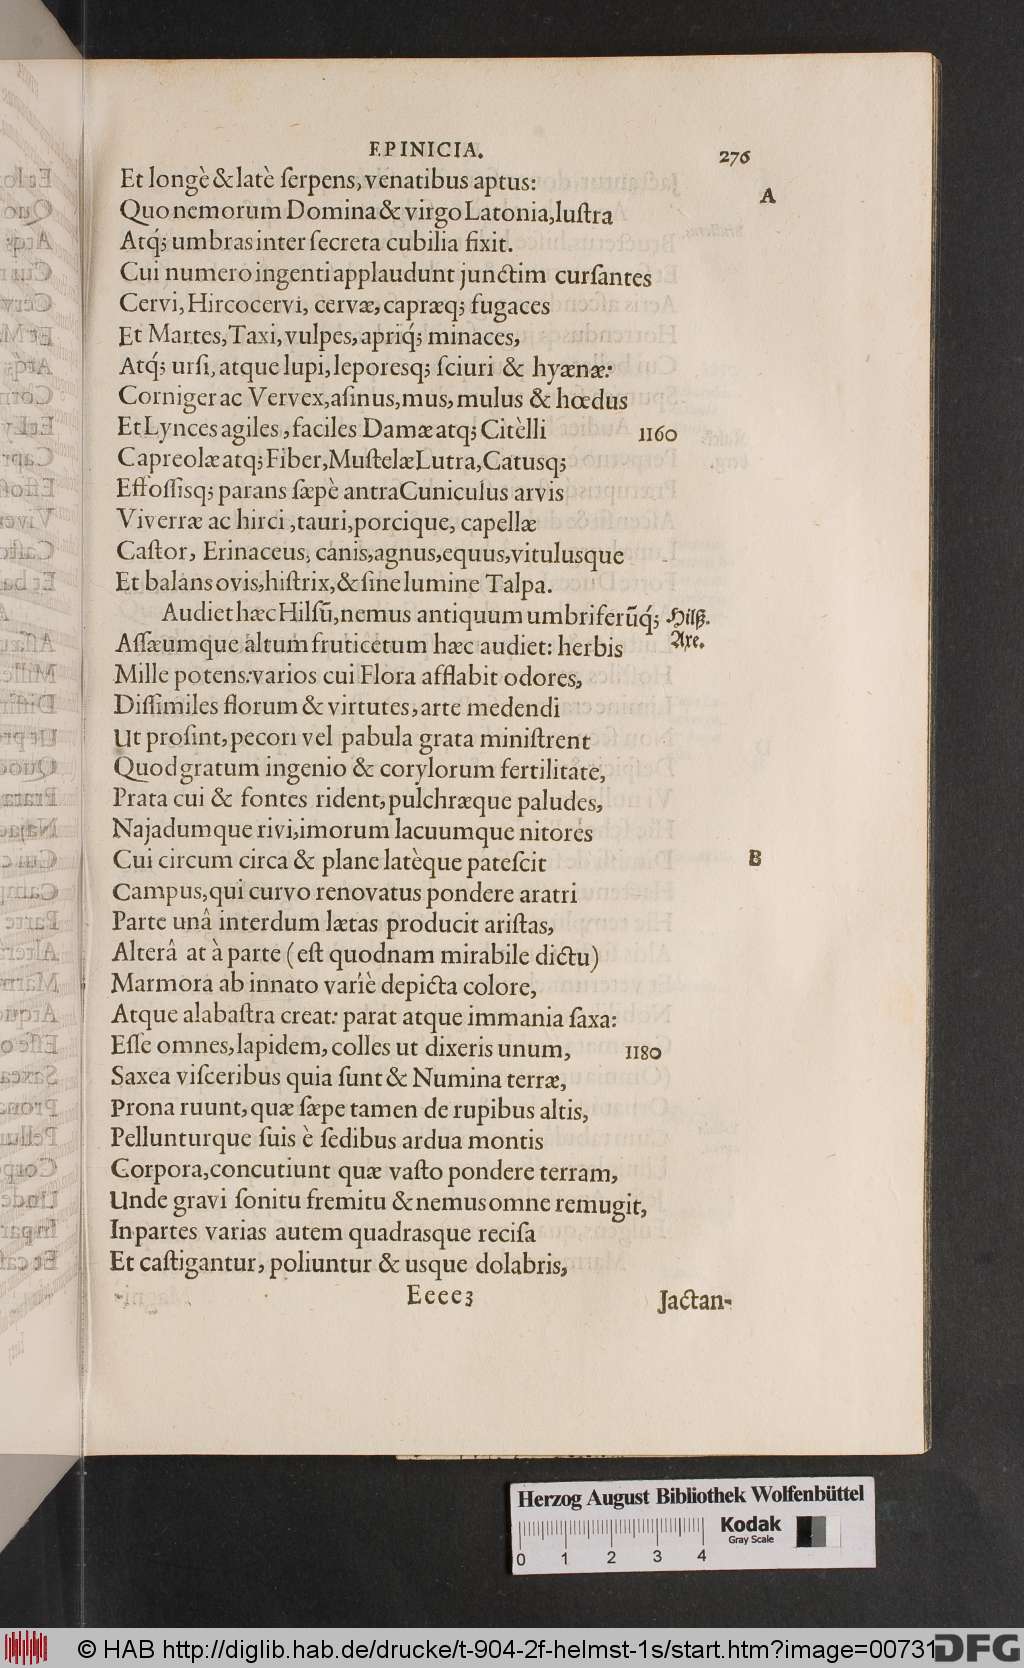 EPINICIA. 276
Et longè & latè ſerpens, venatibus aptus:
A
Quo nemorum Domina & virgo Latonia, luſtra
Atq́; umbras inter ſecreta cubilia fixit.
Cui numero ingenti applaudunt junctim curſantes
Cervi, Hircocervi, cervæ, capræq; fugaces
Et Martes, Taxi, vulpes, apriq́; minaces,
Atq́; urſi, atque lupi, leporesq; ſciuri & hyænæ:
Corniger ac Vervex, aſinus, mus, mulus & hœdus
Et Lynces agiles, faciles Damæ atq; Citèlli 1160
Capreolæ atq; Fiber, Muſtelæ Lutra, Catusq;
Effoſſisq; parans ſæpè antra Cuniculus arvis
Viverræ ac hirci, tauri, porcique, capellæ
Caſtor, Erinaceus, canis, agnus, equus, vitulusque
Et balans ovis, hiſtrix, & ſine lumine Talpa.
Audiet hæc Hilſũ, nemus antiquum umbriferũq́; Hilß.
Aſſæumque altum fruticetum hæc audiet: herbis Axe.
Mille potens: varios cui Flora afflabit odores,
Diſſimiles florum & virtutes, arte medendi
Ut proſint, pecori vel pabula grata miniſtrent
Quod gratum ingenio & corylorum fertilitate,
Prata cui & fontes rident, pulchræque paludes,
Najadumque rivi, imorum lacuumque nitores
Cui circum circa & plane latèque pateſcit B
Campus, qui curvo renovatus pondere aratri
Parte unâ interdum lætas producit ariſtas,
Alterâ at à parte (eſt quodnam mirabile dictu)
Marmora ab innato variè depicta colore,
Atque alabaſtra creat: parat atque immania ſaxa:
Eſſe omnes, lapidem, colles ut dixeris unum, 1180
Saxea viſceribus quia ſunt & Numina terræ,
Prona ruunt, quæ ſæpe tamen de rupibus altis,
Pellunturque ſuis è ſedibus ardua montis
Corpora, concutiunt quæ vaſto pondere terram,
Unde gravi ſonitu fremitu & nemus omne remugit,
In partes varias autem quadrasque reciſa
Et caſtigantur, poliuntur & usque dolabris,
Eeee3 Jactan-
Herzog August Bibliothek Wolfenbüttel
0 1 2 3 4
Kodak
Gray Scale
© HAB http://diglib.hab.de/drucke/t-904-2f-helmst-1s/start.htm?image=00731
DFG